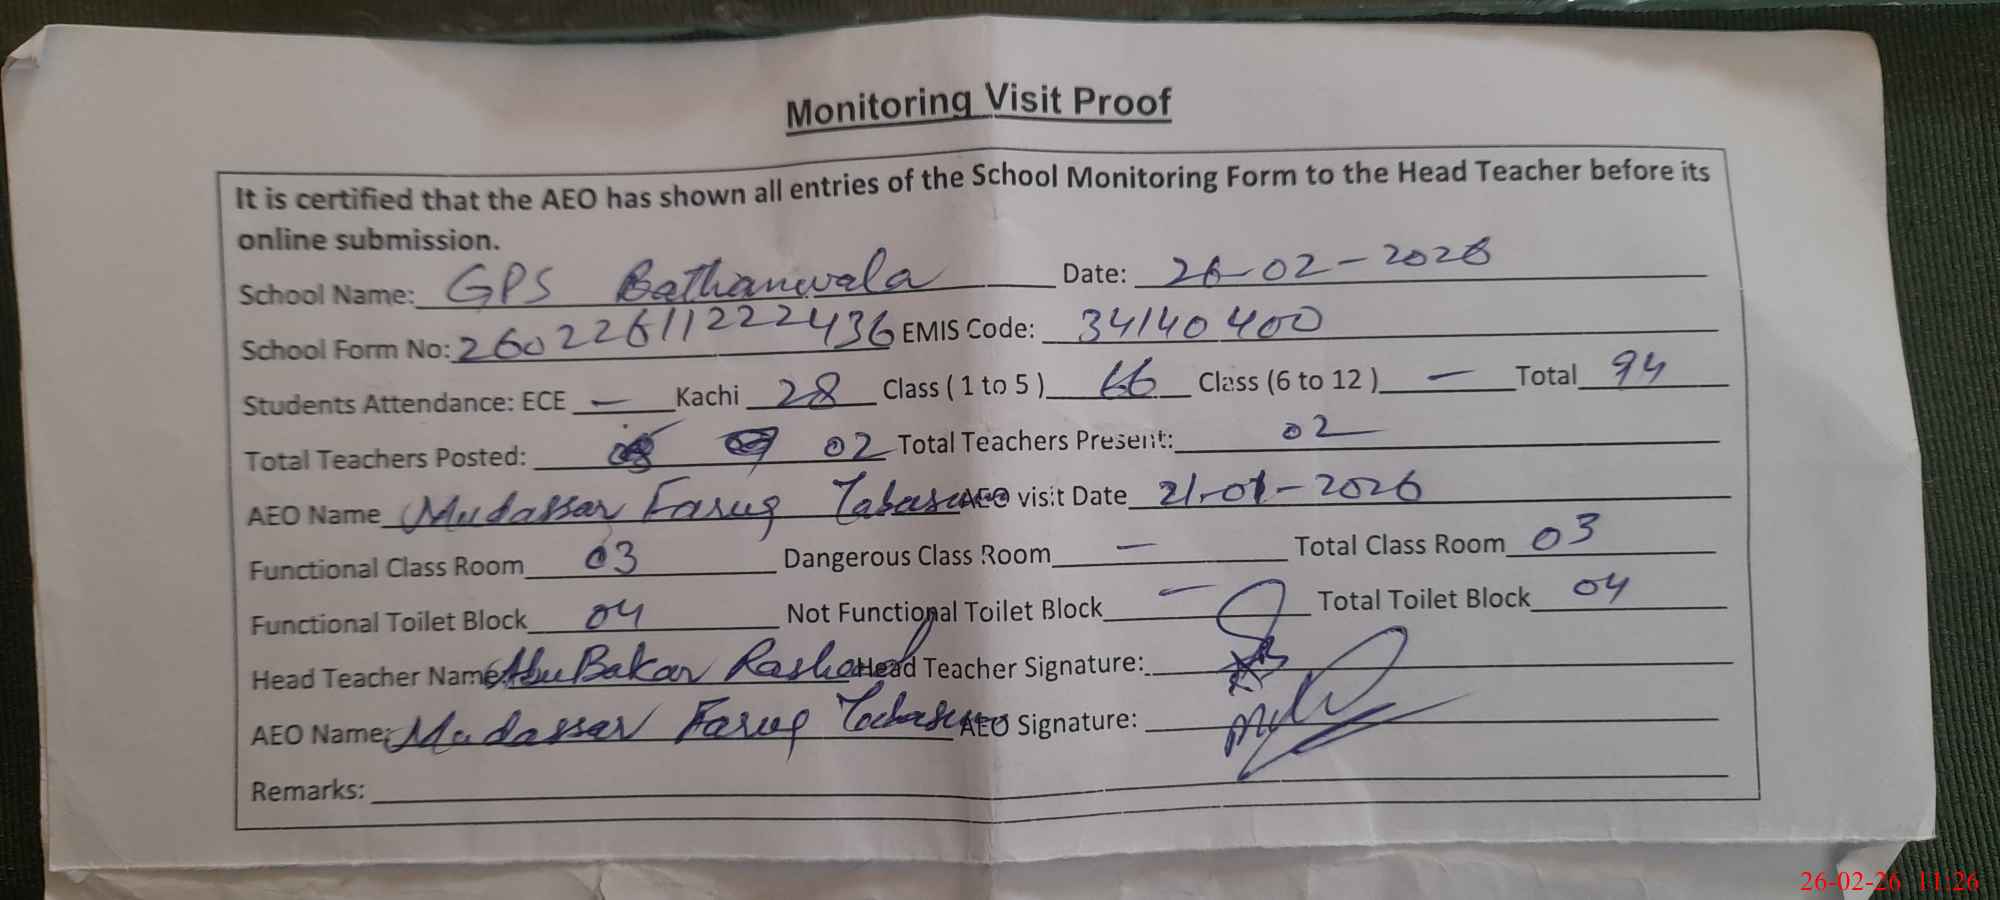 Monitoring Visit Proof
It is certified that the AEO has shown all entries of the School Monitoring Form to the Head Teacher before its
online submission.
School Name: GPS Bathanwala Date: 26-02-2026
School Form No: 260226111222436 EMIS Code: 34140400
Students Attendance: ECE — Kachi 28 Class ( 1 to 5 ) 66 Class (6 to 12 ) — Total 94
Total Teachers Posted: 02 Total Teachers Present: 02
AEO Name Mudassar Faruq Tabasum AEO visit Date 21-01-2026
Functional Class Room 03 Dangerous Class Room — Total Class Room 03
Functional Toilet Block 04 Not Functional Toilet Block — Total Toilet Block 04
Head Teacher Name: Abu Bakar Rashad Head Teacher Signature:
AEO Name: Mudassar Faruq Tabasum AEO Signature:
Remarks:
26-02-26 11:26